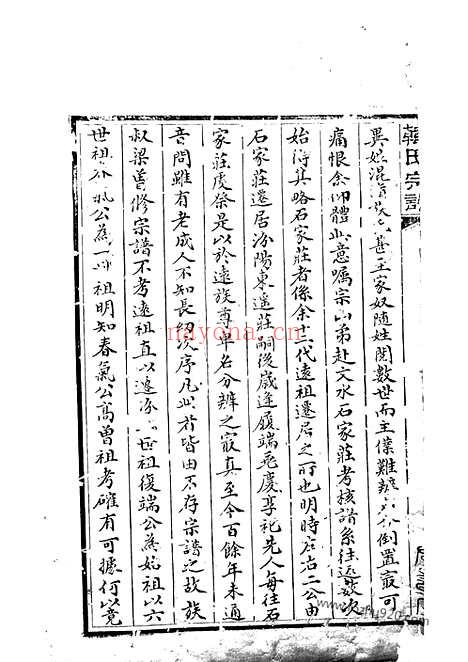 韓氏宗譜
異姓混 甚至家奴隨姓閱數世而主僕難辨 倒置最可
痛恨余仰體此意囑宗山弟赴文水石家莊考核譜系往返數次
始得其略石家莊者係余六代遠祖遷居之所也明時 二公由
石家莊遷居汾陽東遥莊嗣後歲逢履端死慶享祀先人每往石
家莊 祭是以於遠族尊卑名分辨之最真至今百餘年未通
音問雖有老成人不知長幼次序凡此者皆由不存宗譜之故族
叔梁曾修宗譜不考遠祖直以遷汾 世祖復端公為始祖以六
世祖 公為一世祖明知春氣公高曾祖考確有可據何以竟
nayona.cn